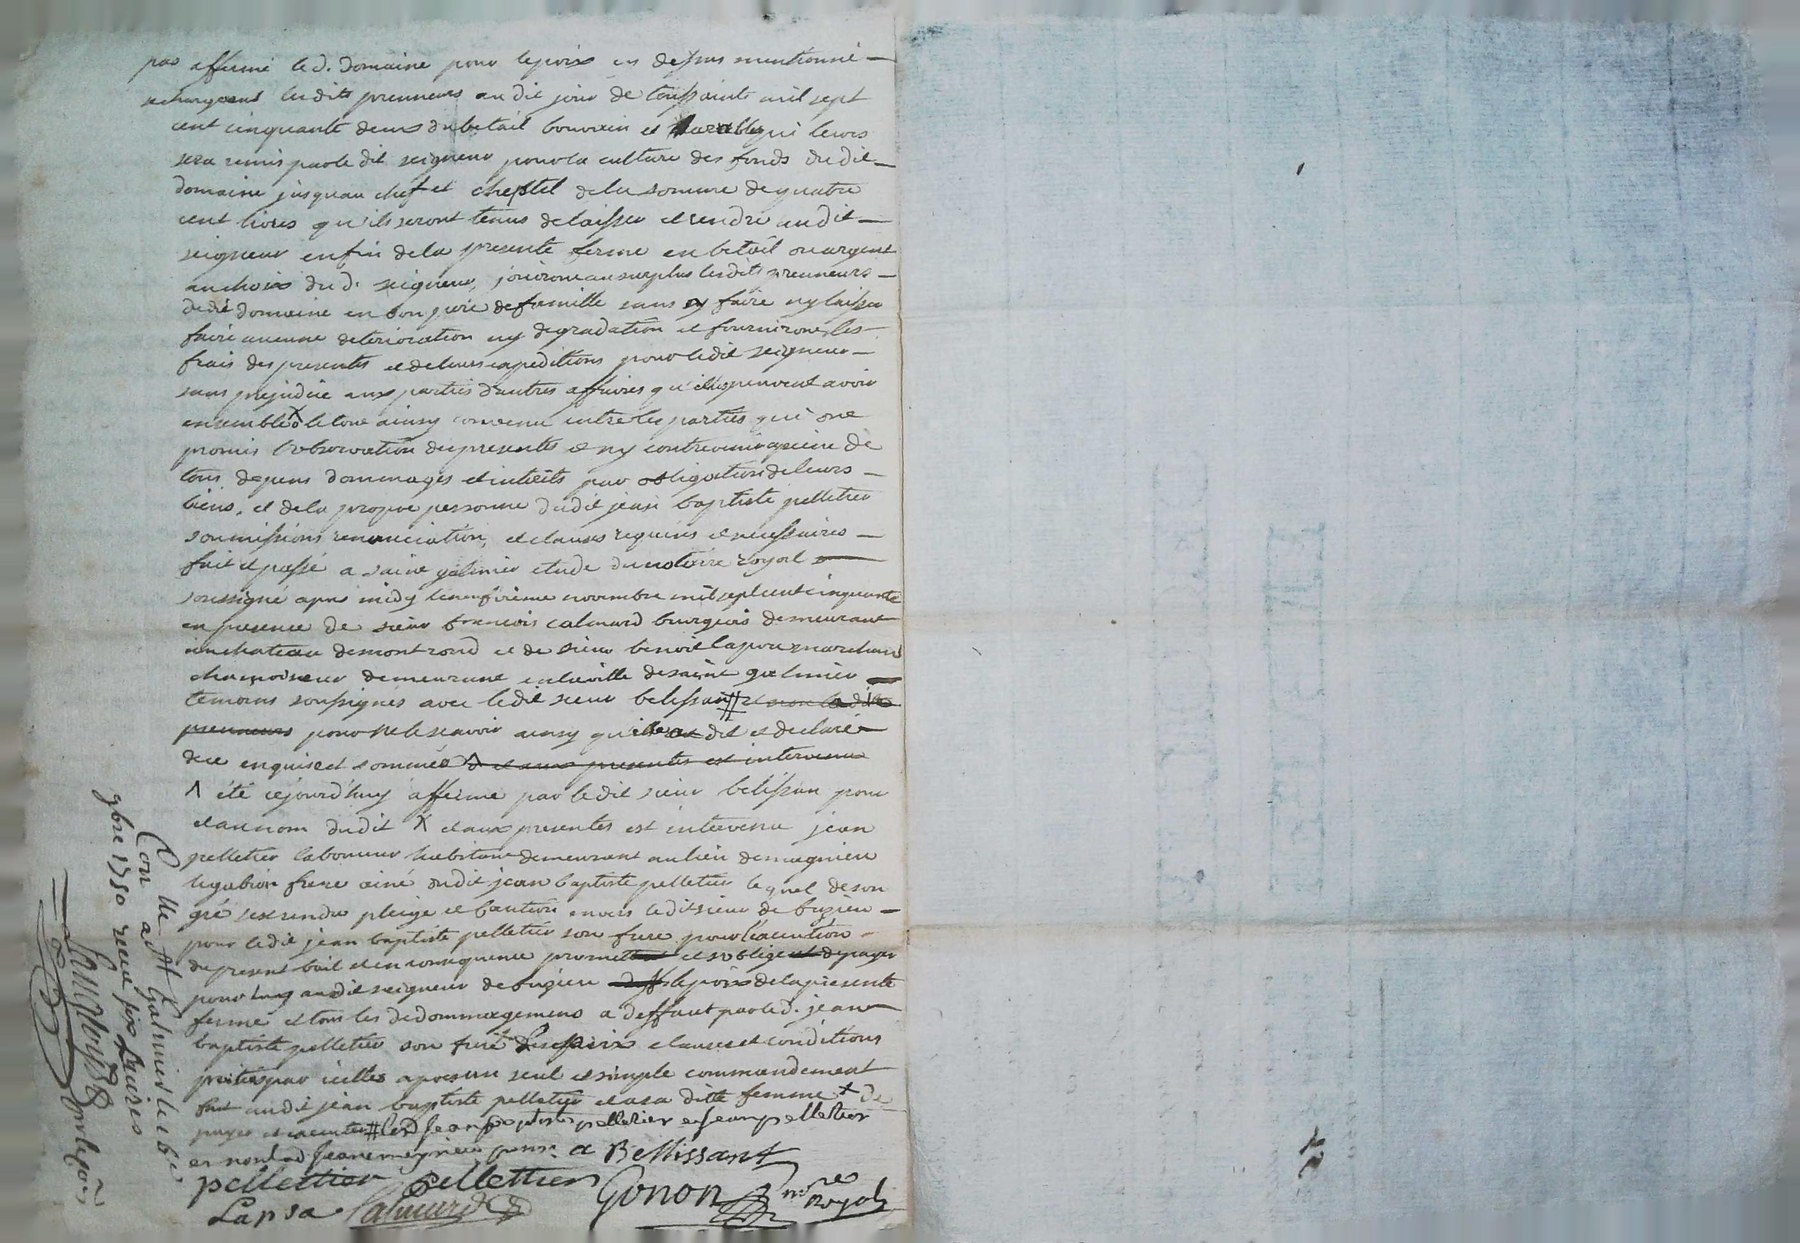 pas affermé le d. domaine pour le prix cy dessus mentionné
se chargeant lesdits prenneurs audit jour de toussaint mil sept
cent cinquante deux du betail bouvain et arable qui leurs
sera remis par le dit seigneur pour la culture des fonds dudit
domaine jusquau chef et cheptel de la somme de quatre
cent livres qu'ils seront tenus de laisser et rendre audit
seigneur en fin de la presente ferme en betail ou argent
au choix du d. seigneur, jouiront au surplus lesdits prenneurs
dudit domaine en bon pere de famille sans y faire ny laisser
faire aucune deterioration ny degradation et fourniront les
frais des presentes et de leurs expeditions pour ledit seigneur
sans prejudice aux parties d'autres affaires qu'elles peuvent avoir
ensemble le tout ainsy convenu entre les parties qui ont
promis l'observation des presentes et ny contrevenir a peine de
tous depens dommages et interets par obligation de leurs
biens, et de la propre personne dudit jean baptiste pelletier
soumissions renonciation, et clauses requises et necessaires
fait et passé a saint galmier etude du notaire royal
soussigné apres midy le neufvieme novembre mil sept cent cinquante
en presence de sieur francois calmard bourgeois demeurant
au chateau de montrond et de sieur benoit lapra marchand
chamoiseur demeurant en la ville de saint galmier
temoins soussignés avec ledit sieur belissan # et non lesdits
prenneurs pour ne le scavoir ainsy qu'ils ont dit et declaré
de ce enquis et sommés X et aux presentes est intervenu
Λ été cejourd'huy affermé par ledit sieur belissan pour
et au nom dudit X et aux presentes est intervenu jean
pelletier laboureur habitant demeurant au lieu de magnieu
frere ainé dudit jean baptiste pelletier lequel de son
gré s'est rendu pleige et caution envers ledit sieur de
pour ledit jean baptiste pelletier son frere pour l'execution
du present bail et en consequence promet et s'oblige de payer
pour luy audit seigneur de le prix de la presente
ferme et tous les dedommagemens a deffaut par le d. jean
baptiste pelletier son frere clauses et conditions
portées par icelles apres un seul et simple commandement
fait audit jean baptiste pelletier et a sa ditte femme + de
payer et executer # led jean baptiste pelletier et jean pelletier
et non lad jeanne a Bellissant
pellettier pelletier Gonon nre royal
Lapra Calmard
Con lle a St Galmier le 16e
9bre 1750 receu six livres